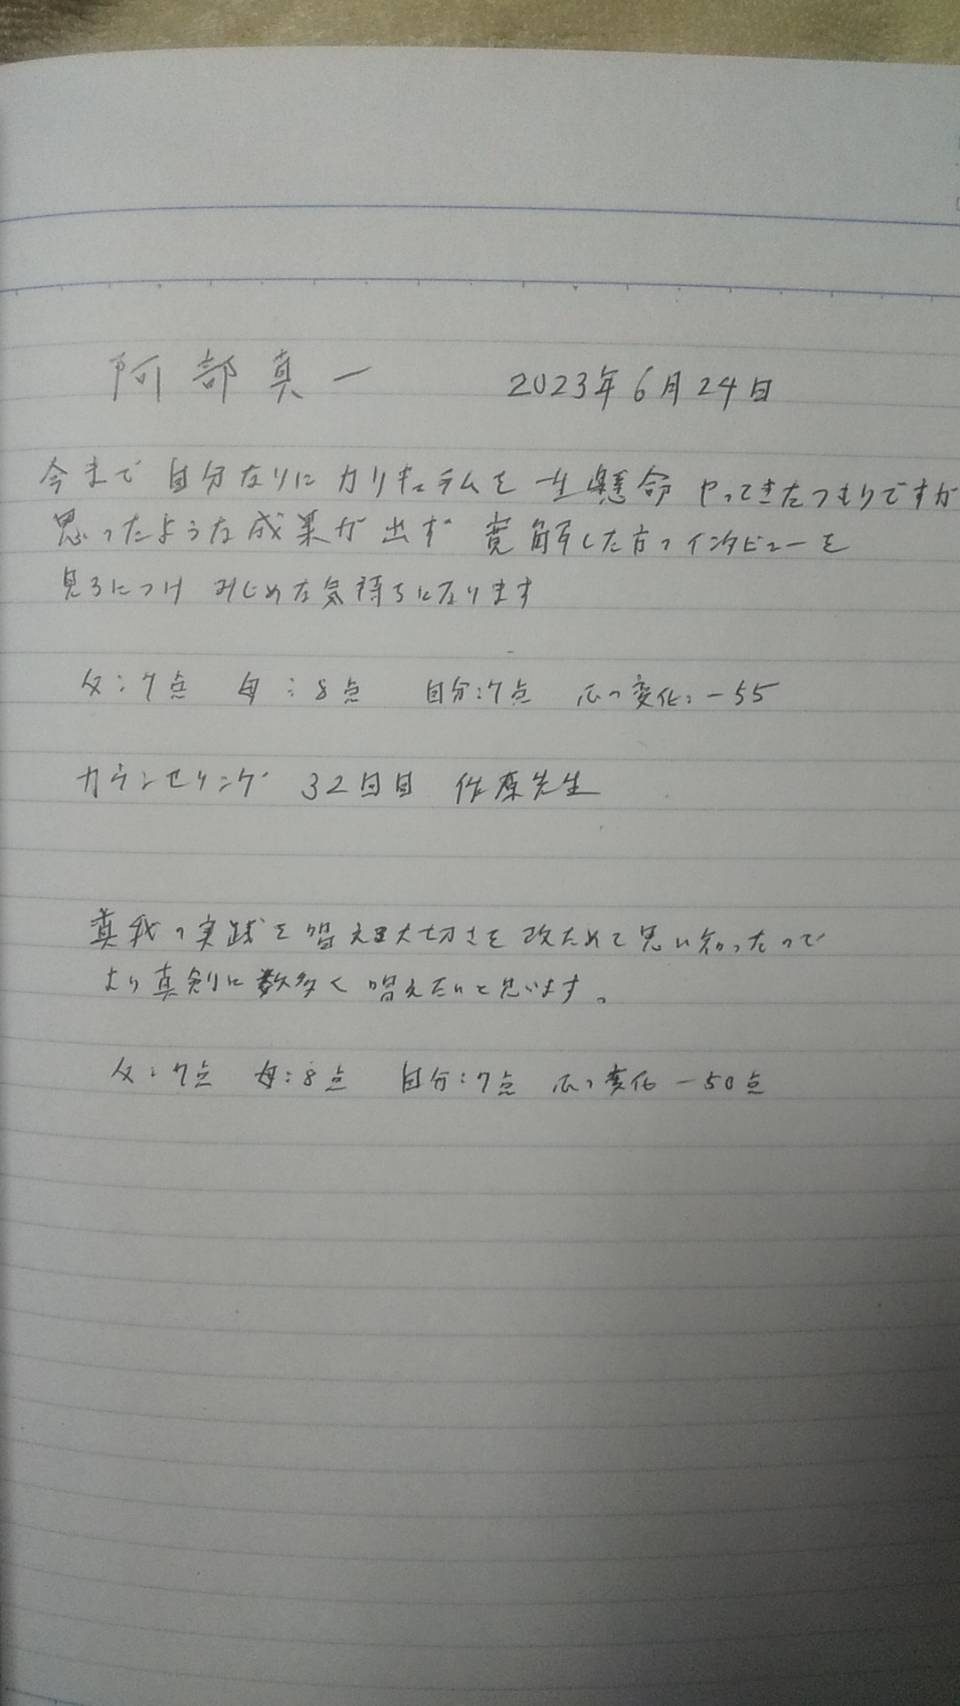 阿部真一 2023年6月24日
今まで自分なりにカリキュラムを一生懸命やってきたつもりですが
思ったような成果が出ず 寛解した方のインタビューを
見るにつけ みじめな気持ちになります
父:7点 母:8点 自分:7点 心の変化:-55
カウンセリング 32回目 作原先生
真我の実践を唱える大切さを改ためて思い知ったので
より真剣に数多く唱えたいと思います。
父:7点 母:8点 自分:7点 心の変化 -50点